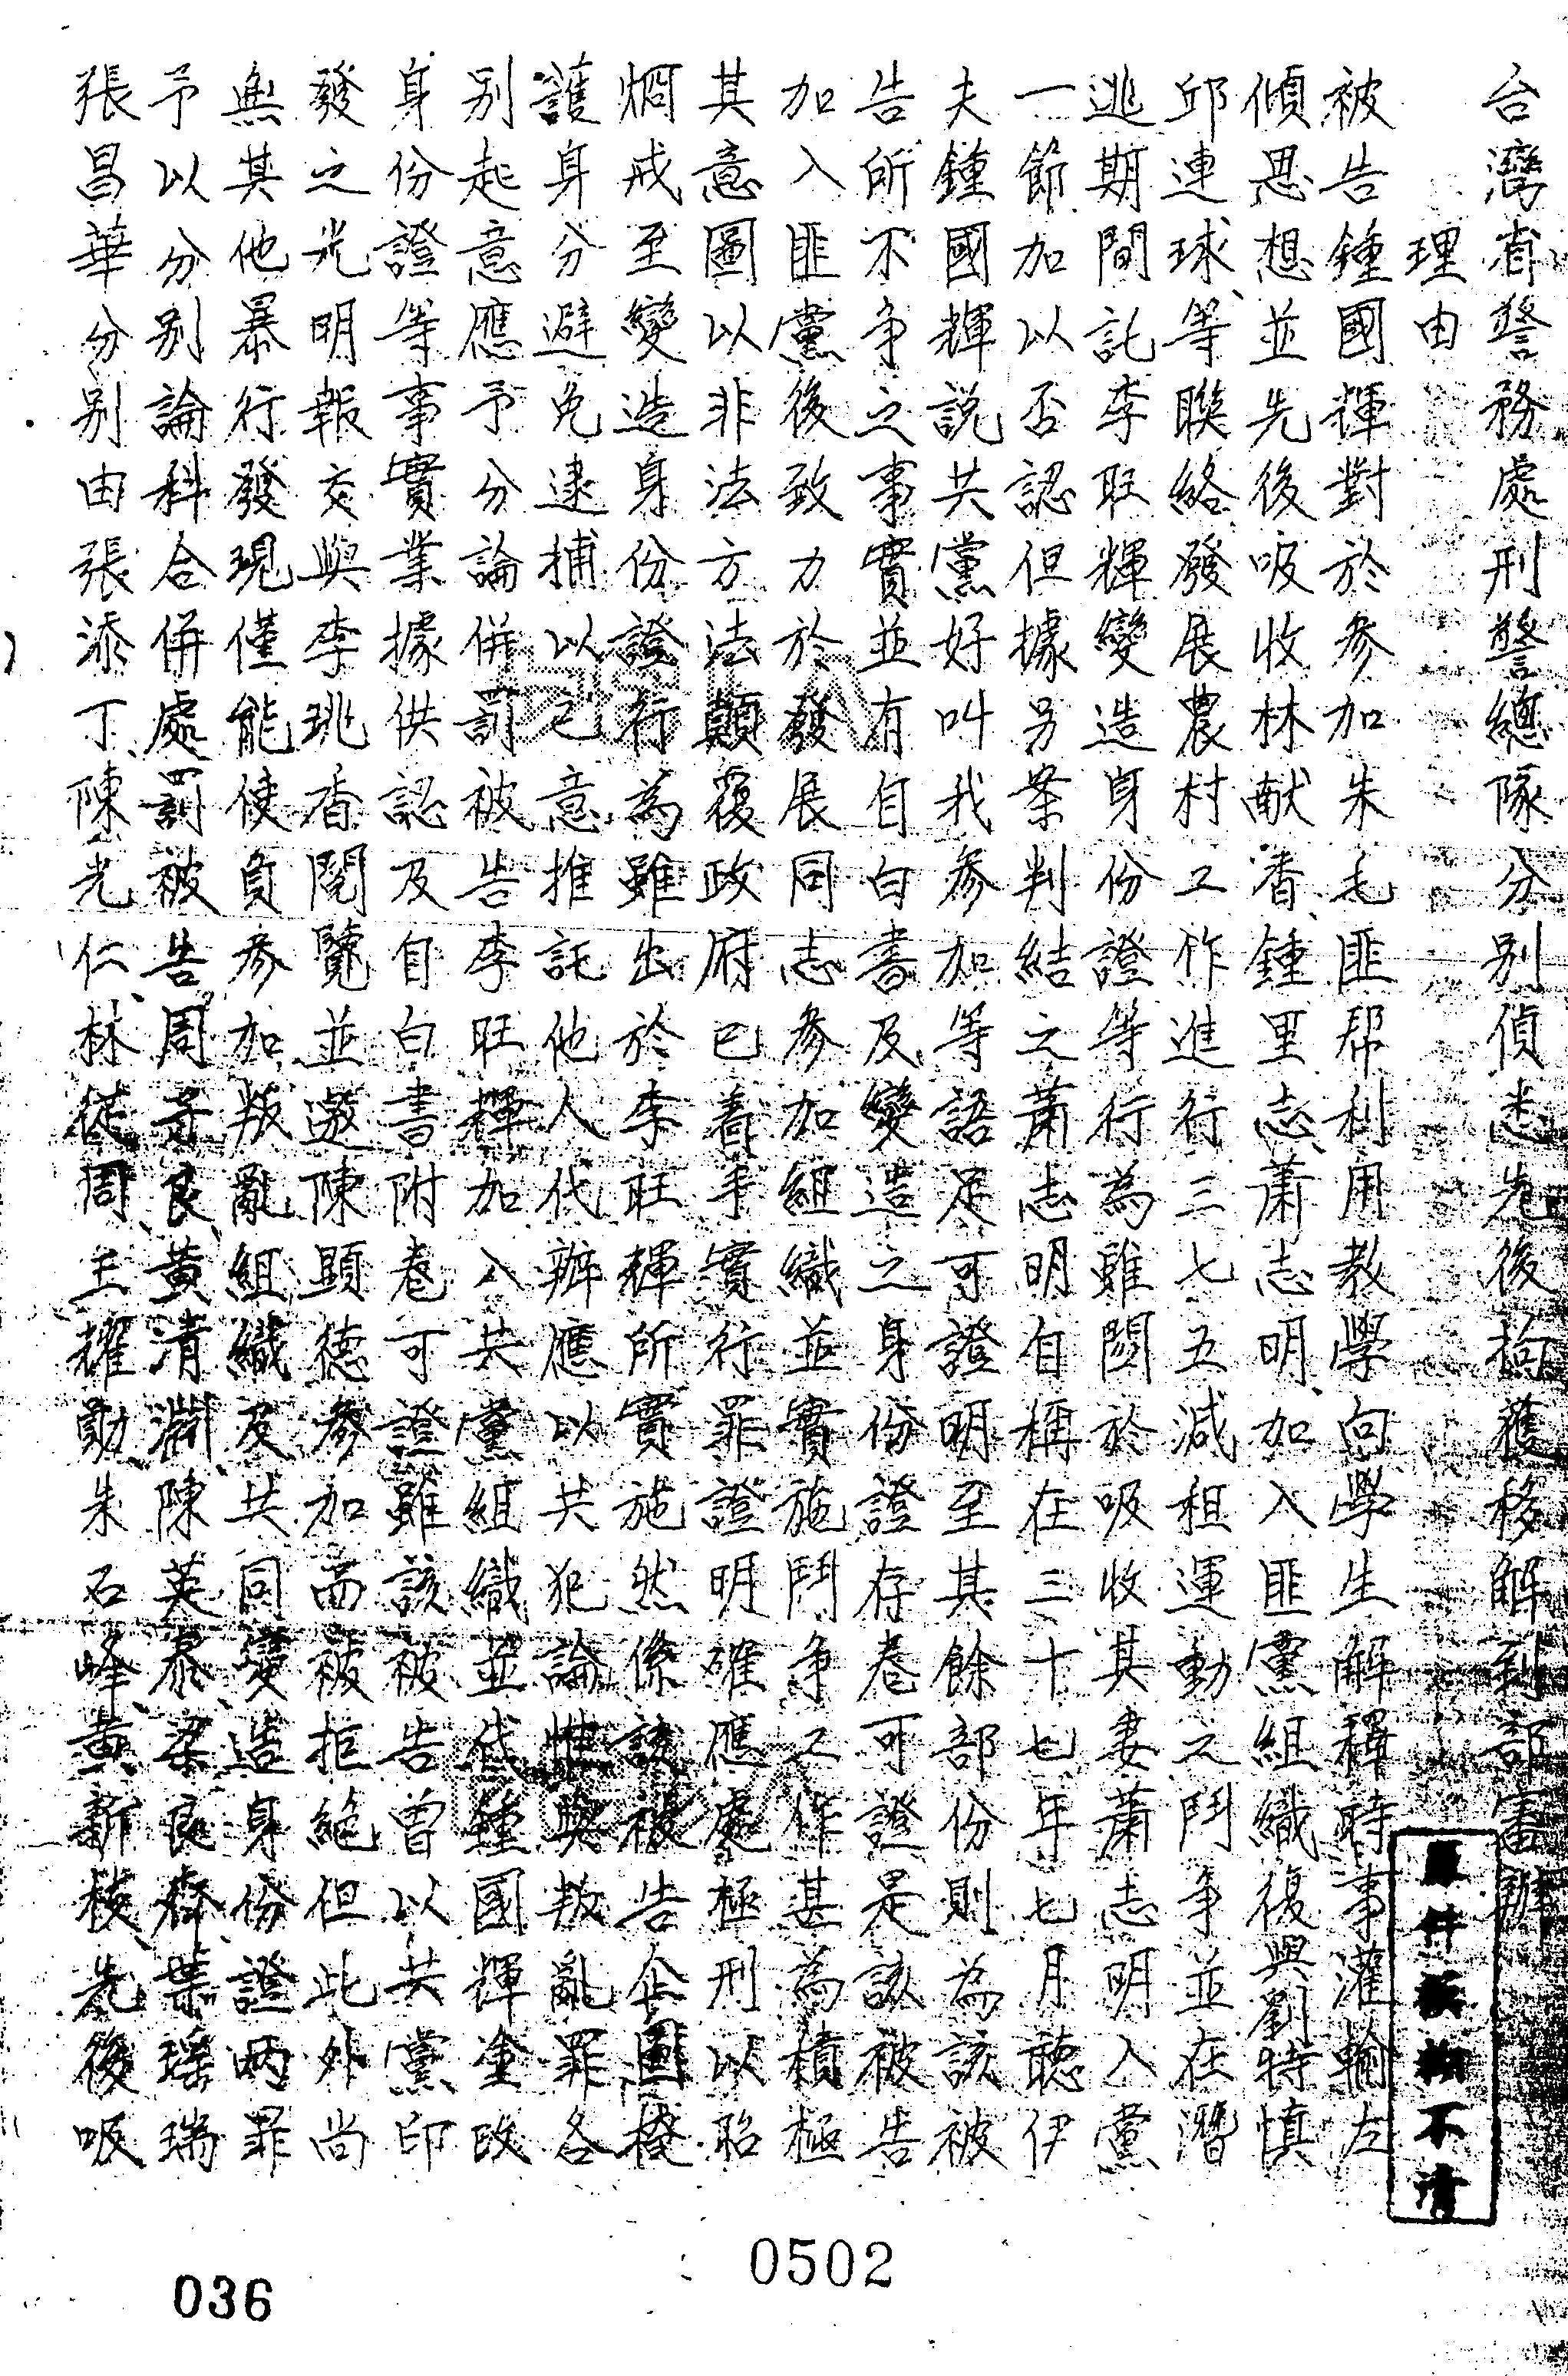 台灣省警務處刑警總隊分別偵悉先後拘獲移解到部審辦
理由
被告鍾國輝對於參加朱毛匪幫利用教學向學生解釋時事灌輸左
傾思想並先後吸收林献香鍾里志蕭志明加入匪黨組織復與劉特慎
邱連球等聯絡發展農村工作進行三七五減租運動之鬥爭並在潛
逃期間託李旺輝變造身份證等行為雖關於吸收其妻蕭志明入黨
一節加以否認但據另案判結之蕭志明自稱在三十七年七月聽伊
夫鍾國輝說共黨好叫我參加等語足可證明至其餘部份則為該被
告所不爭之事實並有自白書及變造之身份證存卷可證是該被告
加入匪黨後致力於發展同志參加組織並實施鬥爭工作甚為積極
其意圖以非法方法顛覆政府已着手實行罪證明確應處極刑以昭
烱戒至變造身份證行為雖出於李旺輝所實施然係該被告企圖掩
護身分避免逮捕以己意推託他人代辦應以共犯論惟與叛亂罪各
別起意應予分論併罰被告李旺輝加入共黨組織並代鍾國輝塗改
身份證等事實業據供認及自白書附卷可證雖該被告曾以共黨印
發之光明報交與李珧香閱覽並邀陳顕德參加而被拒絕但此外尚
無其他暴行發現僅能使負參加叛亂組織及共同變造身份證兩罪
予以分別論科合併處罰被告周芳良黃清淵陳英泰梁良齊葉瑶瑞
張昌華分別由張添丁陳光仁林從周王耀勛朱石峰黃新棱先後吸
原件模糊不清
0502
036